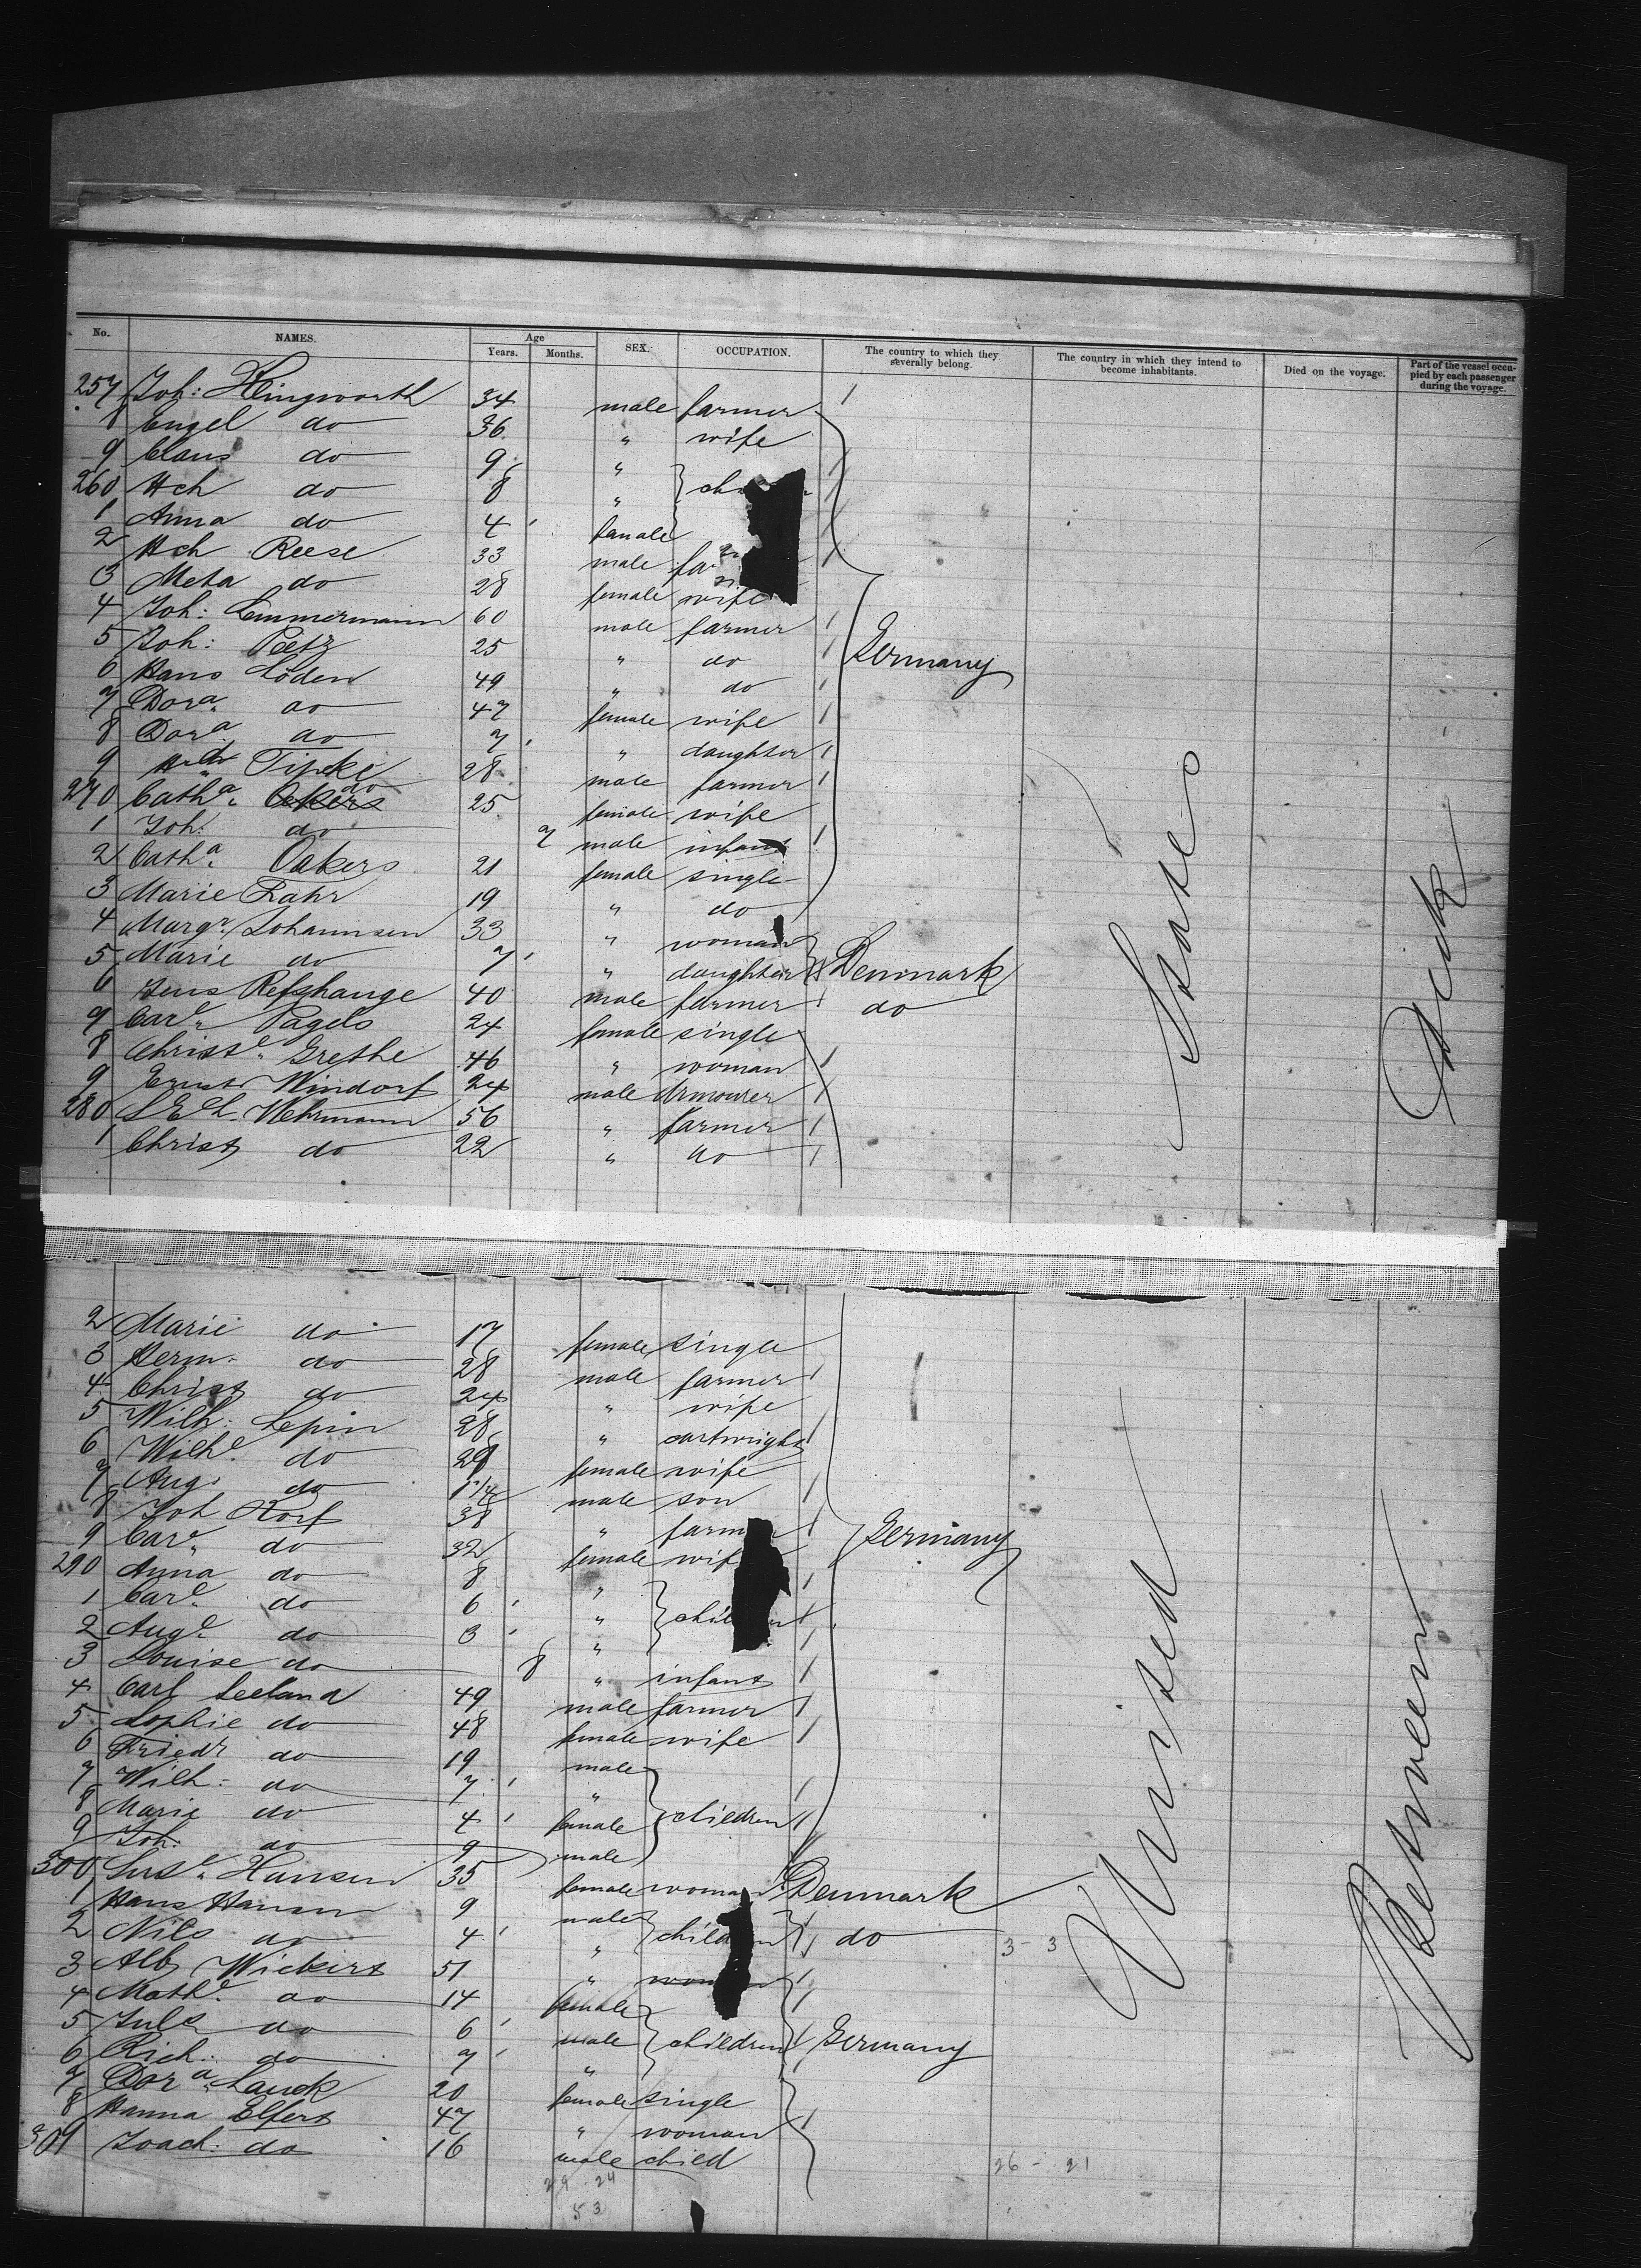 No. NAMES. Age Years. Months. SEX. OCCUPATION. The country to which they severally belong. The country in which they intend to become inhabitants. Died on the voyage. Part of the vessel occupied by each passenger during the voyage.
257 Joh: Hingworth 34 male farmer
8 Engel do 36 " wife
9 Claus do 9 "
260 Hch do 8 "
1 Anna do 4 female
2 Hch Reese 33 male
3 Meta do 28 female wife
4 Joh: Lemmermann 60 male farmer
5 Joh: Peetz 25 " do Germany
6 Hans Löden 49 " do
7 Dora do 47 female wife
8 Dora do 7 " daughter
9 Tipcke 28 male farmer
270 Catha do 25 female wife
1 Joh. do 7 male infant
2 Catha Oakers 21 female single
3 Marie Fahr 19 " do
4 Marga Johannsen 33 " woman
5 Marie do 7 " daughter Denmark
6 Jens Refshauge 40 male farmer do
7 Care Pagels 24 female single
8 Christe Grethe 46 " woman
9 Ernst Windorf 24 male Armourer
280 Wehrmann 56 " farmer
1 Christ do 22 " do
2 Marie do 17 female single
3 Herm. do 28 male farmer
4 Christ do 24 " wife
5 Wilh: Lepin 28 " cartwright
6 Wilhe do 29 female wife
7 Aug. do male son
8 Joh Korf 38 " farmer
9 Care do 32 female wife Germany
290 Anna do 8 "
1 Care do 6 " children
2 Auge do 3 "
3 Louise do 8 " infant
4 Carl Seeland 49 male farmer
5 Sophie do 48 female wife
6 Friedr do 19 male
7 Wilh: do 7 "
8 Marie do 4 female children
9 Joh. do 9 male
300 Hansen 35 female woman Denmark
1 Hans Hansen 9 male
2 Nils do 4 " children do 3-3
3 Alb Wickert 51 "
4 Mathe do 14 female
5 Juls do 6 male children Germany
6 Rich: do 7 "
7 Dora Lauck 20 female single
8 Hanna Elfers 47 " woman
309 Joach: do 16 male child 26-21
29 24
53
United States
Between Deck